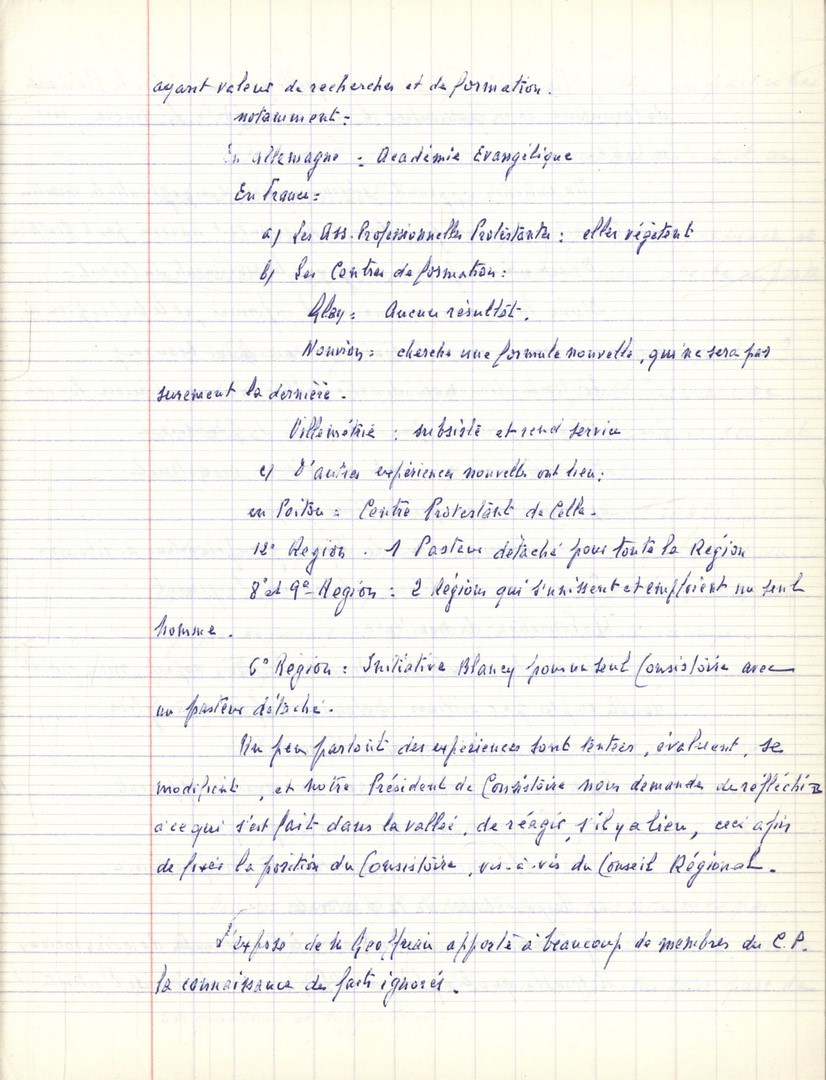 ayant valeur de recherches et de formation.
notamment =
En allemagne = Académie Evangélique
En France =
a) Les Ass. Professionnelles Protestantes : elles végètent
b) Les Centres de formation :
Glay = Aucun résultat.
Nouvion = cherche une formule nouvelle, qui ne sera pas
surement la dernière.
Villemétrie : subsiste et rend service
c) D'autres expériences nouvelles ont lieu :
en Poitou = Centre Protestant de Celle.
12e Region . 1 Pasteur détaché pour toute la Region
8e et 9e Region : 2 Régions qui s'unissent et emploient un seul
homme.
6e Région : Initiative Blancy pour un seul Consistoire avec
un pasteur détaché.
Un peu partout des expériences sont tentées, évaluent, se
modifient, et notre Président de Consistoire nous demande de réfléchir
à ce qui s'est fait dans la vallée, de réagir, s'il y a lieu, ceci afin
de fixer la position du Consistoire, vis-à-vis du Conseil Régional.
L'exposé de apporte à beaucoup de membres du C.P.
la connaissance de faits ignorés.